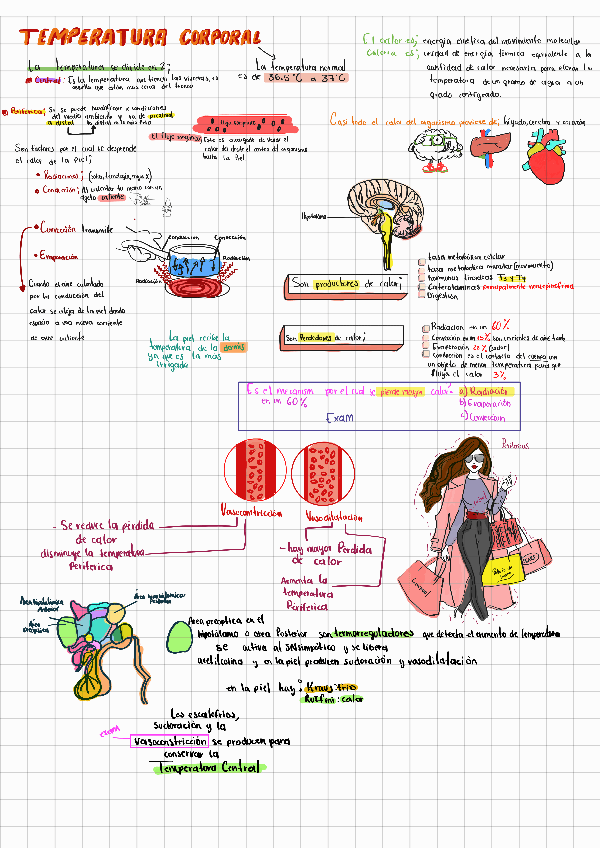 TEMPERATURA CORPORAL
La temperatura se divide en 2;
Central: Es la temperatura que tienen las vísceras, es
aquella que están más cerca del tronco
La temperatura normal
es de 36.5°C a 37°C
El calor es; energía cinética del movimiento molecular
Caloría es; unidad de energía térmica equivalente a la
cantidad de calor necesaria para elevar la
temperatura de un gramo de agua a un
grado centígrado.
Periférica; Se puede modificar x condiciones
del medio ambiente y va de proximal
a distal
El flujo
Este es encargado de llevar el
calor desde el centro del organismo
hasta la Piel
Casi todo el calor del organismo proviene de; hígado, cerebro y corazón
Son factores por el cual se desprende
el calor de la piel;
Radiaciones;
Conducción; Al calentar tu mano con un
objeto caliente
Convección transmite
Evaporación
Conducción
Convección
Radiación
Radiación
Cuando el aire calentado
por la conducción del
calor se aleja de la piel dando
espacio a una nueva corriente
de aire caliente
La piel recibe la
temperatura de la dermis
ya que es la más
irrigada
Hipotálamo
Son productores de calor;
tasa metabólica celular
tasa metabólica muscular (movimiento)
hormonas tiroideas T3 y T4
Catecolaminas principalmente norepinefrina
Digestión
Son Perdedores de calor;
Radiación en un 60%
Convección en un 15% son corrientes de aire
Evaporación 22% (sudor)
Conducción es el contacto del cuerpo con
un objeto de menor temperatura para que
fluya el calor 3%
Es el mecanism por el cual se pierde mayor calor
en un 60%
a) Radiación
b) Evaporación
c) Convección
Exam
Vasoconstricción
Vasodilatación
- Se reduce la pérdida
de calor
disminuye la temperatura
Periférica
- hay mayor Pérdida
de calor
Aumenta la
temperatura
Periférica
Area hipotalámica
Anterior
Area hipotalámica
Posterior
Area
preóptica
Area preóptica en el
hipotálamo o area Posterior son termorreguladores que detecta el aumento de temperatura
se activa al SNSimpático y se libera
acetilcolina y en la piel producen sudoración y vasodilatación
en la piel hay; Kraus: frio
Ruffini: calor
Los escalofríos,
sudoración y la
exam
vasoconstricción se producen para
conservar la
Temperatura Central